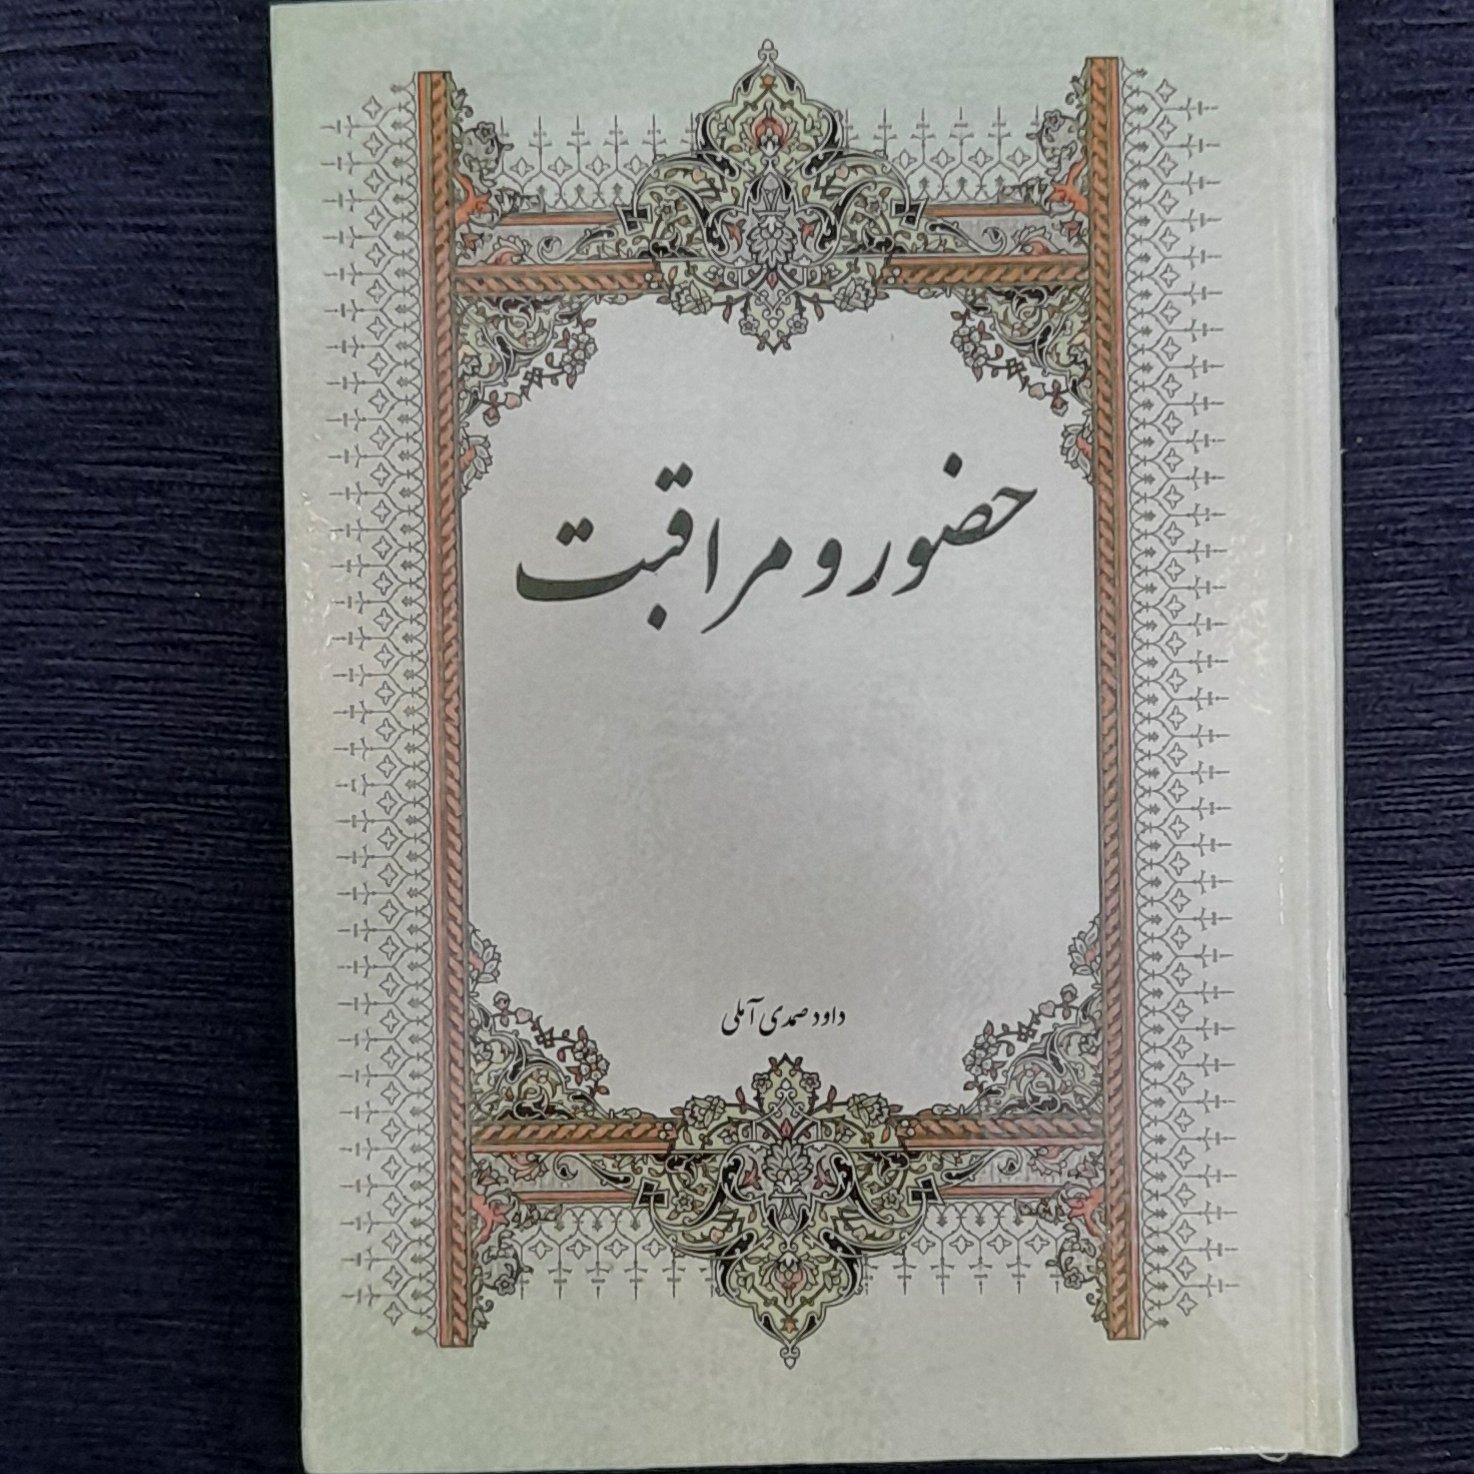 حضور و مراقبت
داود صمدی آملی